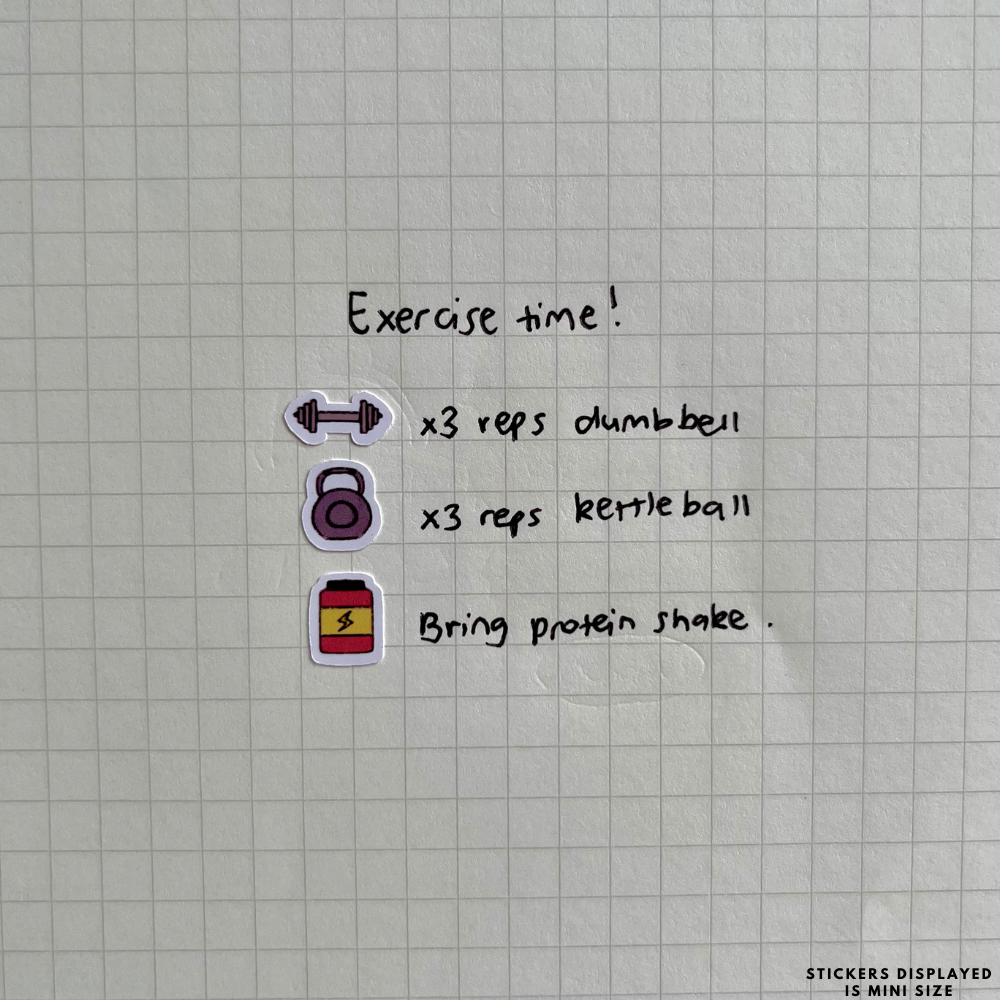 Exercise time!
x3 reps dumbbell
x3 reps kettleball
Bring protein shake.
STICKERS DISPLAYED
IS MINI SIZE